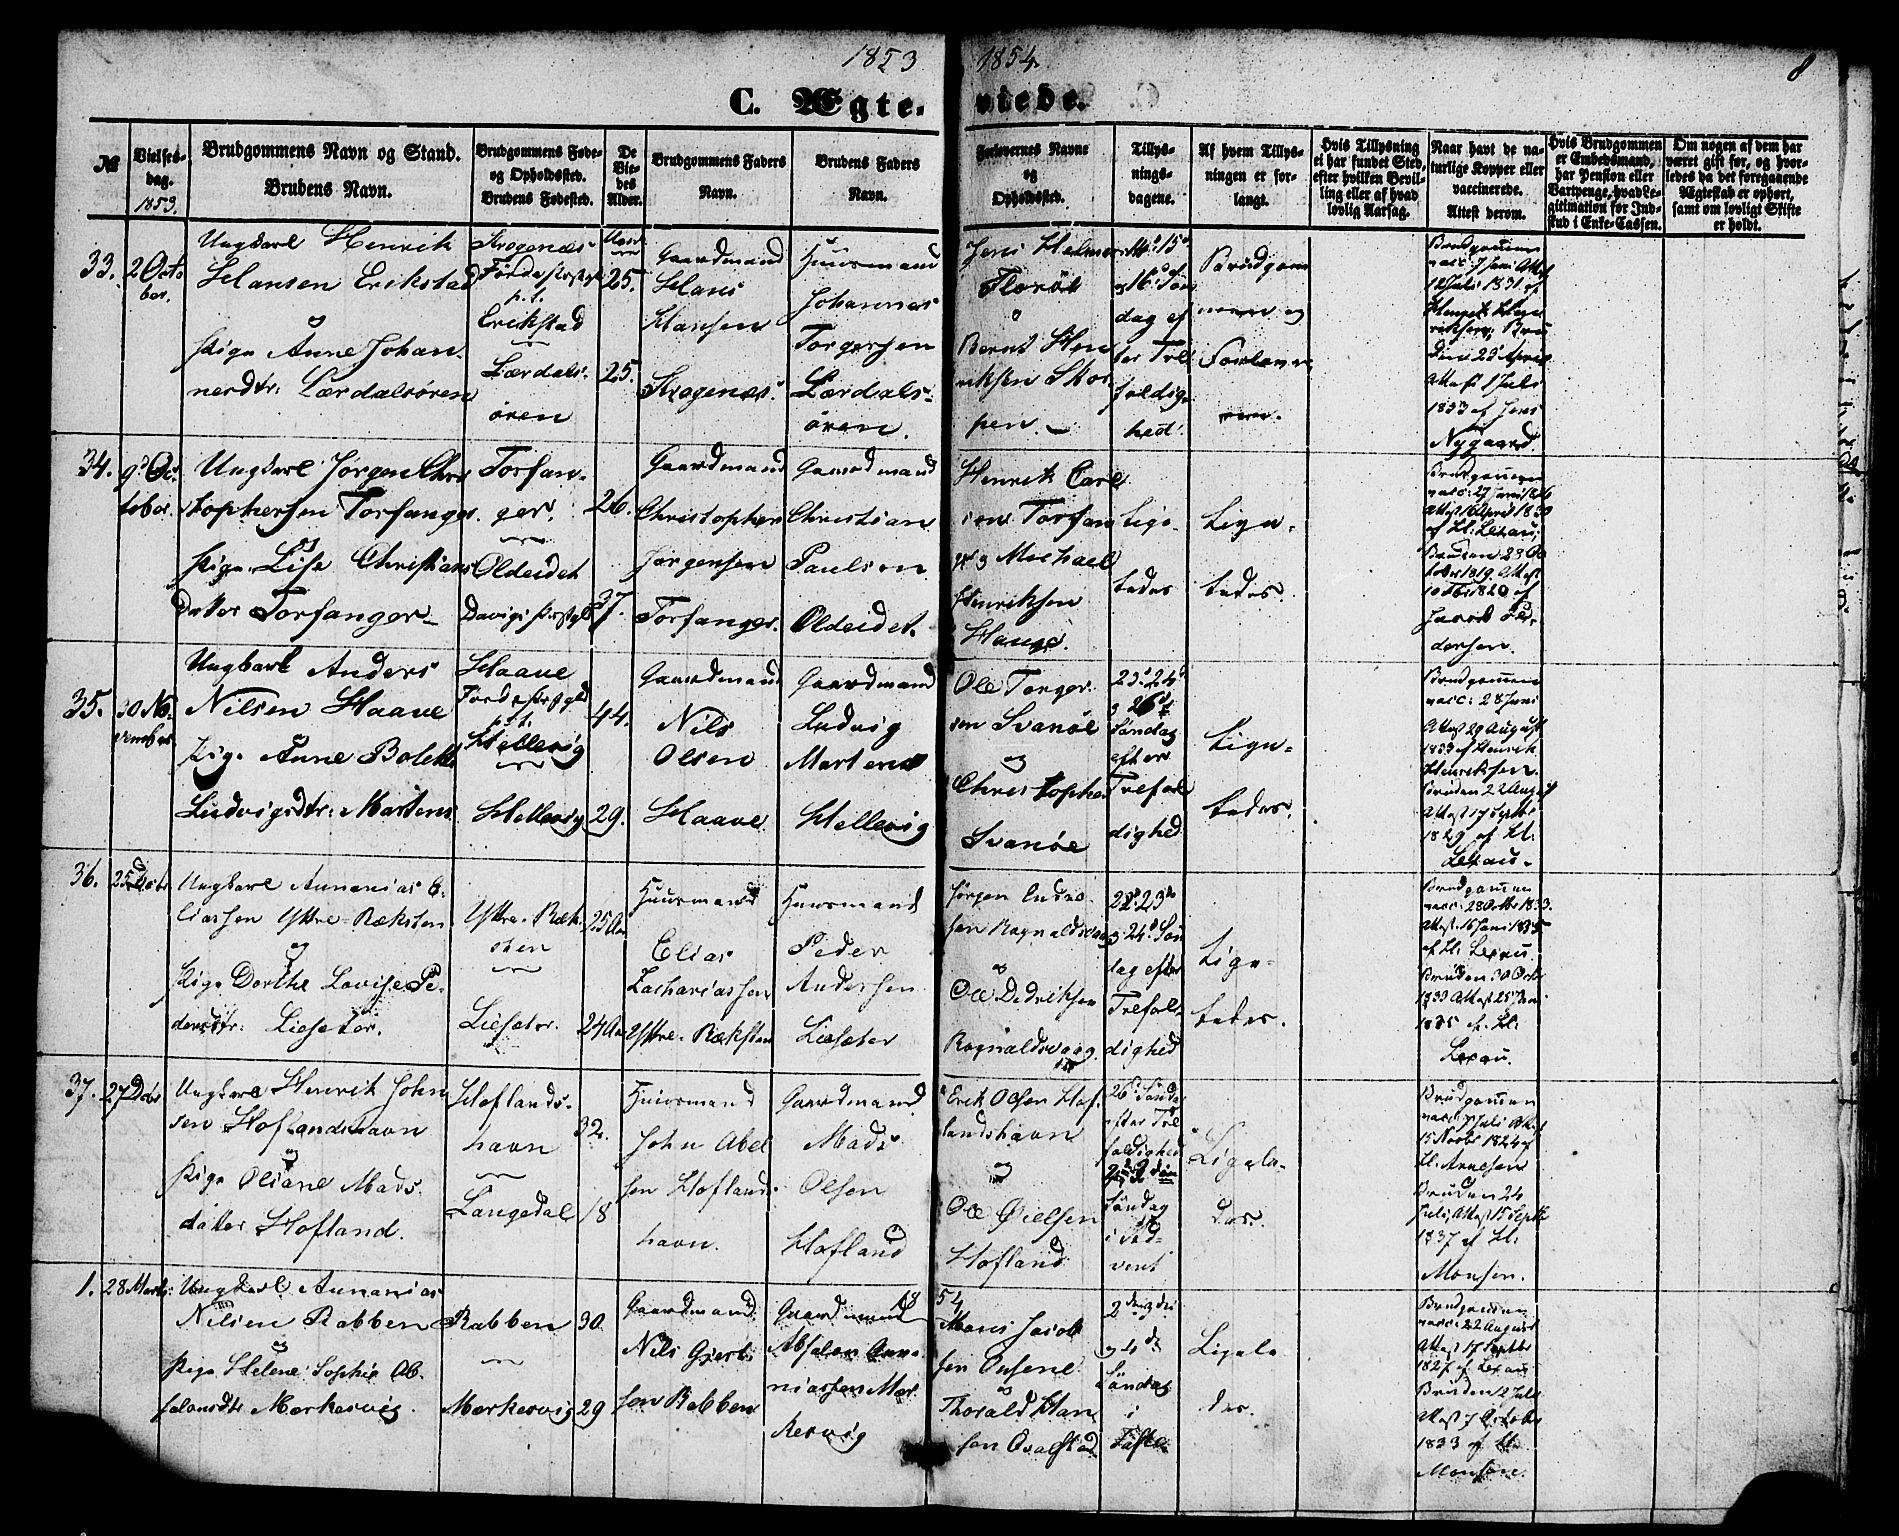 1853
1854.
8
C. Ægte-
viede.
No
Vielses-
dag.
1853.
Brudgommens Navn og Stand.
Brudens Navn.
Brudgommens Føde-
og Opholdssted.
Brudens Fødested.
De
Vie-
des
Alder.
Brudgommens Faders
Navn.
Brudens Faders
Navn.
Forlovernes Navne
og
Opholdssted.
Tillys-
nings-
dagene.
Af hvem Tillys-
ningen er for-
langt.
Hvis Tillysning
ei har fundet Sted,
efter hvilken Bevil-
ling eller af hvad
lovlig Aarsag.
Naar havt de na-
turlige Kopper eller
vaccinerede.
Attest derom.
Hvis Brudgommen
er Embedsmand,
har Pension eller
Vartpenge, hvad Le-
gitimation for Ind-
skud i Enke-Cassen.
Om nogen af dem har
været gift før, og hvor-
ledes da det foregaaende
Ægteskab er ophørt,
samt om lovligt Skifte
er holdt.
33.
2 Octo
ber.
Ungkarl Henrik
Hansen Erikstad
og
Pige Anne Johan
nesdtr: Lærdalsøren
Krogenæs
Førde Præstgld
p.t.
Erikstad
Lærdals-
øren
25.
25.
Gaardmand
Hans
Hansen
Krogenæs.
Huusmand
Johannes
Torgersen
Lærdals-
øren.
Jens Helmer
Florøe
og
Bernt Hen
riksen Skor
pen.
15de
og 16de Søn
dag ef
ter Tre
foldig-
hed.
Brudgom
men og
Forlover
ne.
Brudgommen
vacc: 7 Juni Attest
12 Juli 1831 af
Henrik Hen
riksen; Bru
den 23 April
Attest 1 Juli
1833 af Jens
Nygaard.
34.
9de Oc-
tober.
Ungkarl Jørgen Chris
tophersen Torfanger
og
Pige Lise Christians
datter Torfanger
Torfan-
ger.
Oldeidet
Davigs Præstgld
26.
37.
Gaardmand
Christopher
Jørgensen
Torfanger.
Gaardmand
Christian
Paulsen
Oldeidet.
Henrik Carl
sen Torfan
ger og Michael
Henriksen
Hauge.
Lige-
ledes
Lige-
ledes.
Brudgommen
vacc: 27 Juni 1826
Attest 16 April 1830
af Kl: Lexau;
Bruden 23 Oc
tober 1819. Attest
10 Febr 1820 af
Jacob Pe-
dersen.
35.
20 No-
vember
Ungkarl Anders
Nilsen Haave
Pige Anne Bolette
Ludvigsdtr: Martens
Haave
Førde Præstgld
p.t.
Hellevig
Hellevig
44.
29.
Gaardmand
Nils
Olsen
Haave
Gaardmand
Ludvig
Martens
Hellevig
Ole Torger-
sen Svanøe
og
Christopher
Svanøe
23de 24de
og 26de
Søndag
efter
Trefol
dighed
Lige-
ledes.
Brudgommen
vacc: 28 Juni
Attest 29 August
1833 af Henrik
Henriksen.
Bruden 22 August
Attest 17 Septbr
1829 af Kl:
Lexau.
36.
25 Decbr
Ungkarl Annanias E-
liassen Yttre-Ræksten
og
Pige Dorthe Lovise Pe-
dersdtr: Liesæter.
Yttre-Ræk-
sten
Liesæter.
25 Aar
24 Aar
Huusmand
Elias
Zachariassen
Yttre-Ræksten
Huusmand
Peder
Andersen
Liesæter
Jørgen Endre-
sen Rognaldsvaag
og
Ole Dedriksen
Rognaldsvaag
22de 23de
og 24de Søn
dag efter
Trefol-
dighed
Lige-
ledes.
Brudgommen
vacc: 28 Octbr 1833.
Attest 16 Juni 1835
af Kl: Lexau
Bruden 30 Octbr
1833 Attest 25 Juni
1835 af Kl:
Lexau.
37.
27 Decbr
Ungkarl Henrik John
sen Hoflandshavn
og
Pige Oliane Mads
datter Hofland.
Hoflands-
havn
Langedal
32.
18
Huusmand
John Abel
sen Hoflands
havn.
Gaardmand
Mads
Olsen
Hofland
Erik Olsen Hof-
landshavn
og
Ole Øielsen
Hofland
26de Søndag
efter Tre
foldighed
Søndag
i Ad-
vent
Ligele-
des.
Brudgommen
vacc: 7 Juli Attest
15 Novbr 1824 af
Kl. Arnesen
Bruden 24
Juli, Attest 15 Septbr
1837 af Kl:
Monsen.
1854
1.
28 Marts:
Ungkarl Annanias
Nilsen Rabben
og
Pige Helene Sophie Ab-
salonsdtr Mærkesvig.
Rabben
Mærkesvig
30.
29
Gaardmand
Nils Gjert-
sen Rabben
Gaardmand
Absalon Anna-
niassen Mær-
kesvig
Mons Jacob
sen
og
Thorald Han
sen Qvalstad
2den 3die
og 4de
Søndag
i
Faste
Ligele
des.
Brudgommen
vacc: 22 August
Attest 17 Septbr
1827 af Lexau
Bruden 2 Juli
Attest 7 October
1833 af Kl:
Monsen.